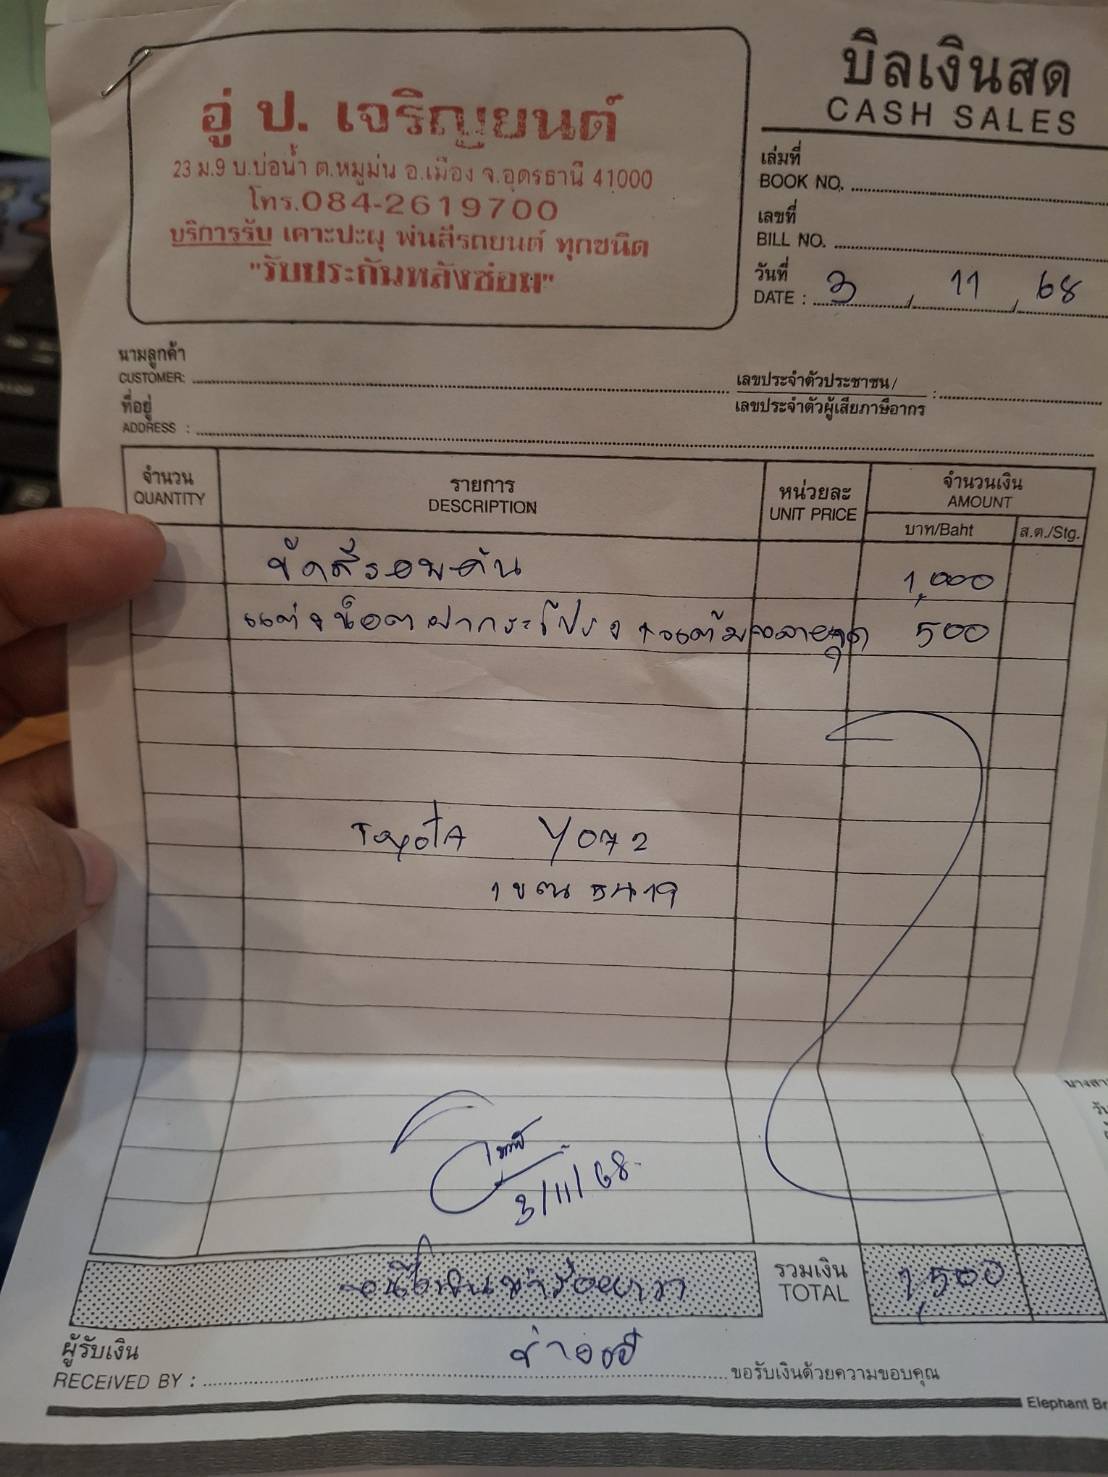 บิลเงินสด
CASH SALES
อู่ ป. เจริญยนต์
23 ม.9 บ.บ่อน้ำ ต.หมูม่น อ.เมือง จ.อุดรธานี 41000
โทร.084-2619700
บริการรับ เคาะปะผุ พ่นสีรถยนต์ ทุกชนิด
"รับประกันหลังซ่อม"
เล่มที่
BOOK NO.
เลขที่
BILL NO.
วันที่
DATE : 3 / 11 / 68
นามลูกค้า
CUSTOMER:
เลขประจำตัวประชาชน/
เลขประจำตัวผู้เสียภาษีอากร :
ที่อยู่
ADDRESS :
จำนวน รายการ หน่วยละ จำนวนเงิน
QUANTITY DESCRIPTION UNIT PRICE AMOUNT
บาท/Baht ส.ต./Stg.
ขัดสีรอบคัน 1,000
แต่งน็อตฝากระโปรง 500
Toyota
5419
3/11/68
รวมเงิน
TOTAL 1,500
ผู้รับเงิน
RECEIVED BY :
ขอรับเงินด้วยความขอบคุณ
Elephant Br